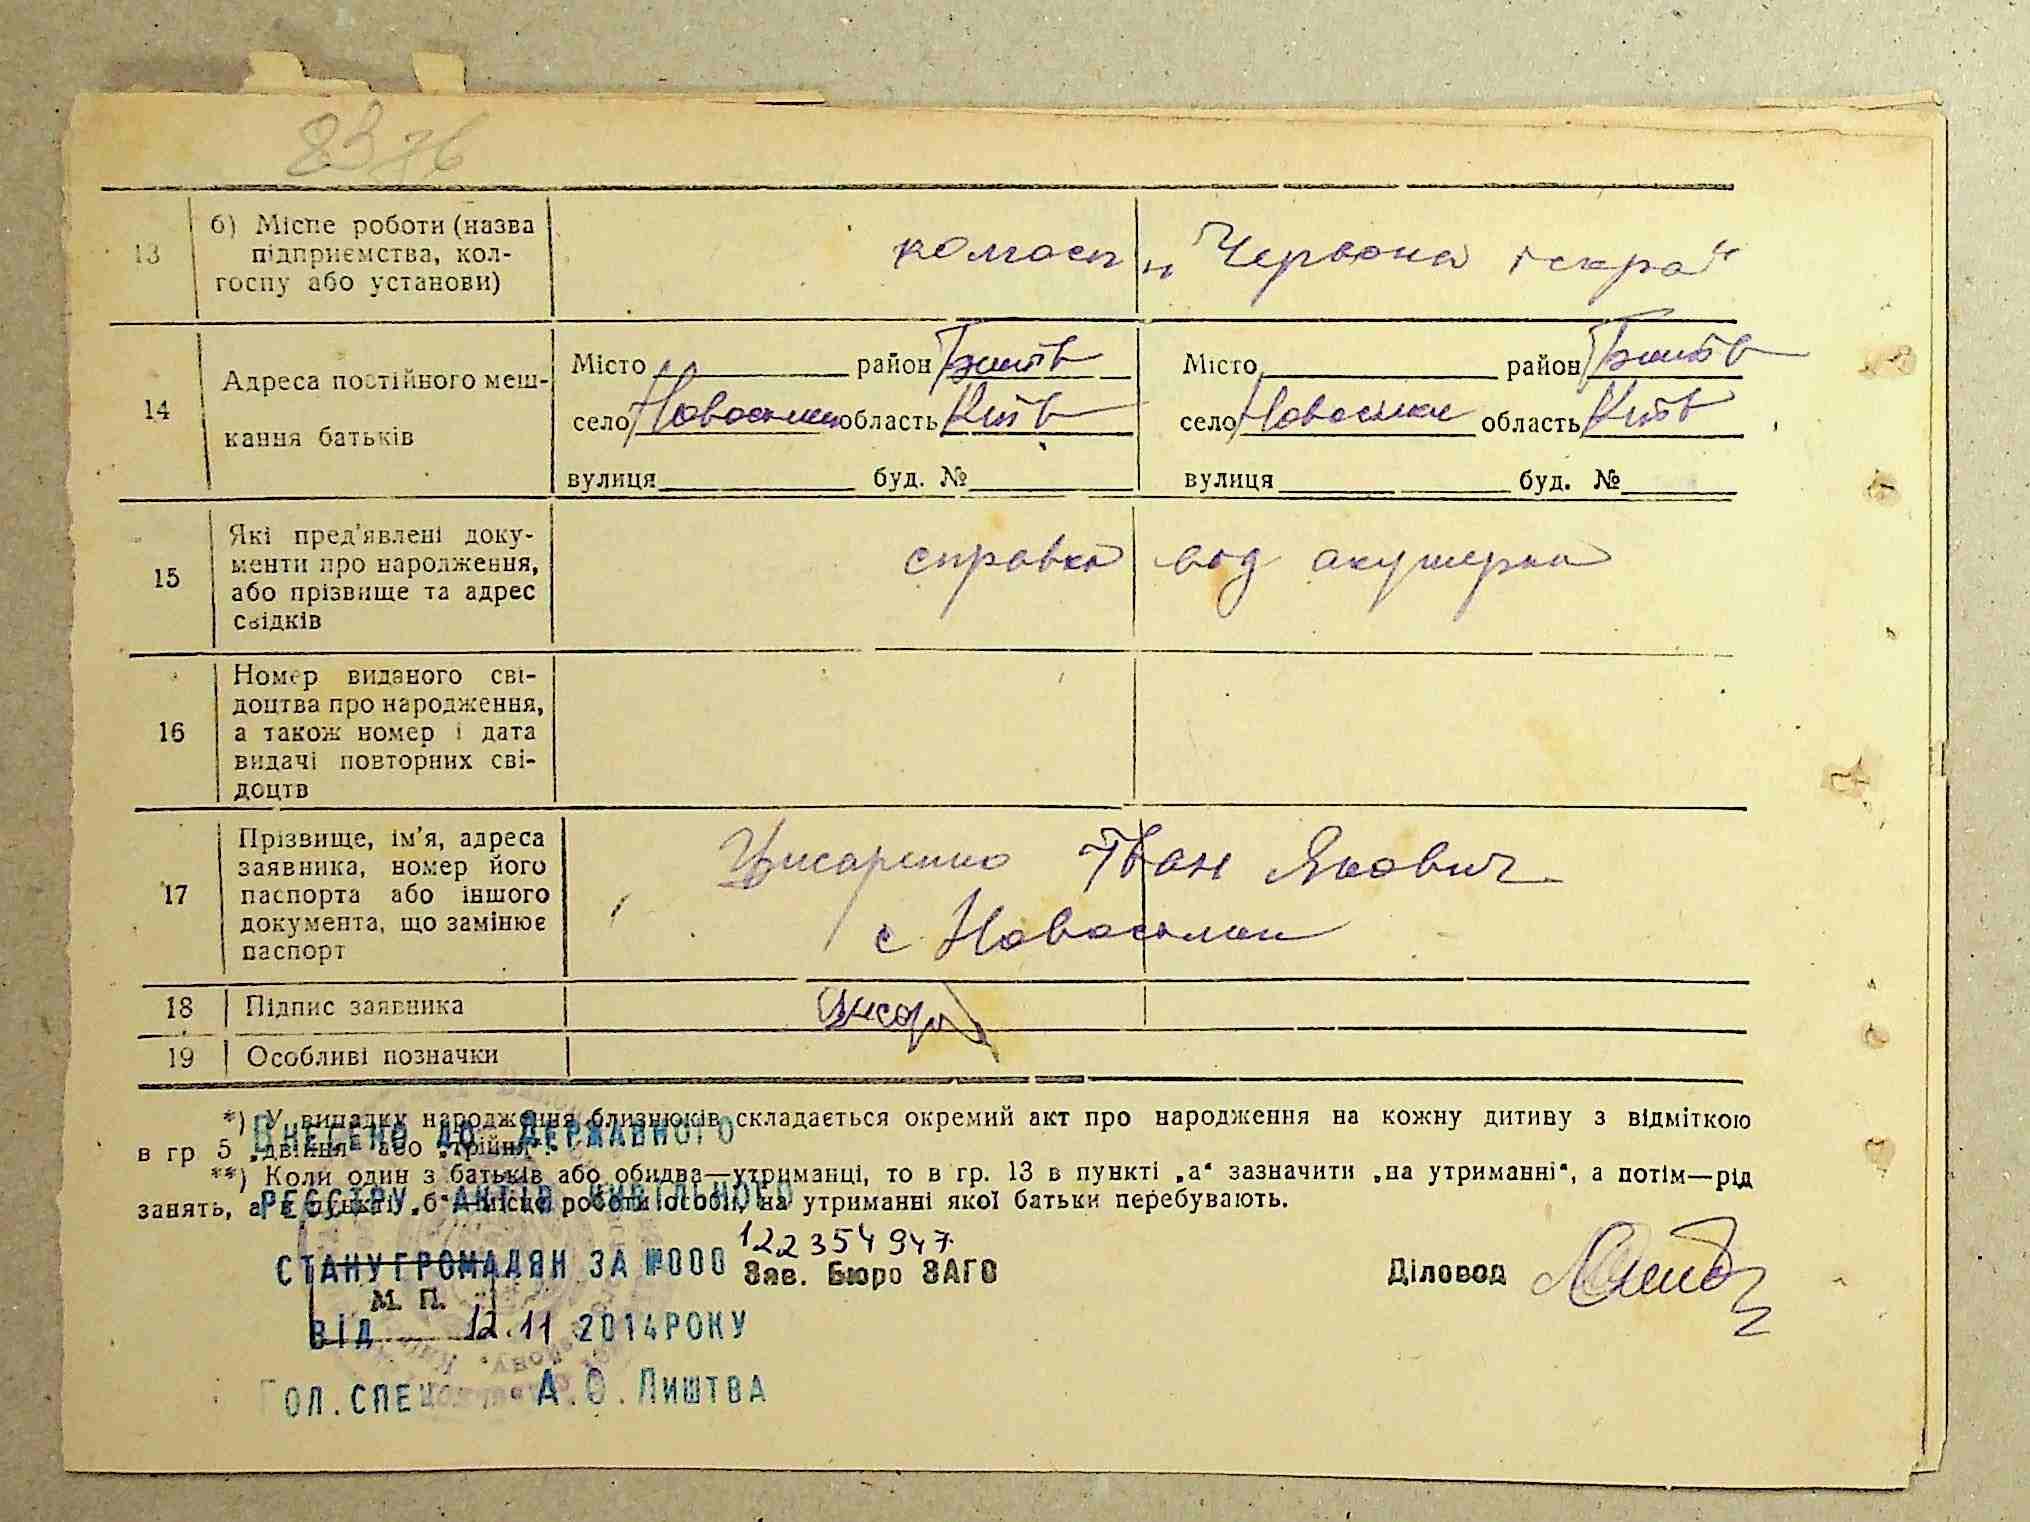 8376
13 б) Місце роботи (назва
підприємства, кол-
госпу або установи)
колгосп „Червона іскра“
14 Адреса постійного меш-
кання батьків
Місто район Бишів Місто район Бишів
село Новосілки область Київ село Новосілки область Київ
вулиця буд. № вулиця буд. №
15 Які пред'явлені доку-
менти про народження,
або прізвище та адрес
свідків
справка від акушерки
16 Номер виданого сві-
доцтва про народження,
а також номер і дата
видачі повторних сві-
доцтв
17 Прізвище, ім'я, адреса
заявника, номер його
паспорта або іншого
документа, що замінює
паспорт
Цисаренко Іван Якович
с Новосілки
18 Підпис заявника
19 Особливі позначки
*) У випадку народження близнюків складається окремий акт про народження на кожну дитину з відміткою
в гр 5 „двійня“ або „трійня“.
**) Коли один з батьків або обидва—утриманці, то в гр. 13 в пункті „а“ зазначити „на утриманні“, а потім—рід
занять, а в пункті „б“—місце роботи особи, на утриманні якої батьки перебувають.
Внесено до Державного
реєстру актів цивільного
стану громадян за №000 122354947
Зав. Бюро ЗАГС Діловод
М. П.
від 12.11 2014 року
Гол. спец. А.О. Лиштва